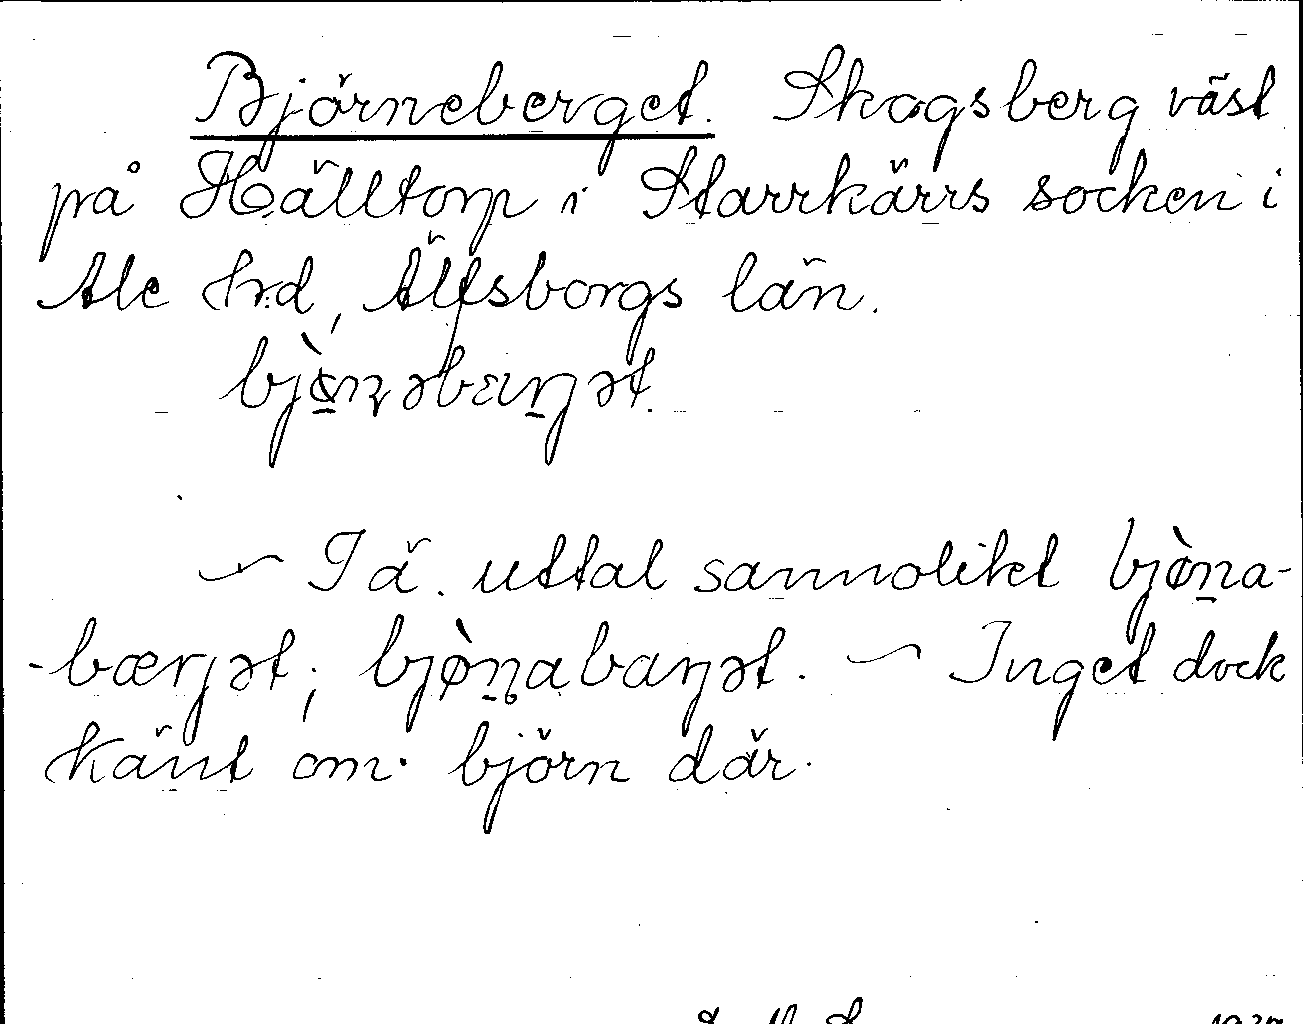 Björneberget. Skogsberg väst
på Hälltorp i Starrkärrs socken i
Ale hrd, Älfsborgs län.
bjø̀ṉəbæṟŋət.
~ I ä. uttal sannolikt bjø̀ṉa-
-bærŋət; bjø̀ṉabaŋət. ~ Inget dock
känt om björn där.